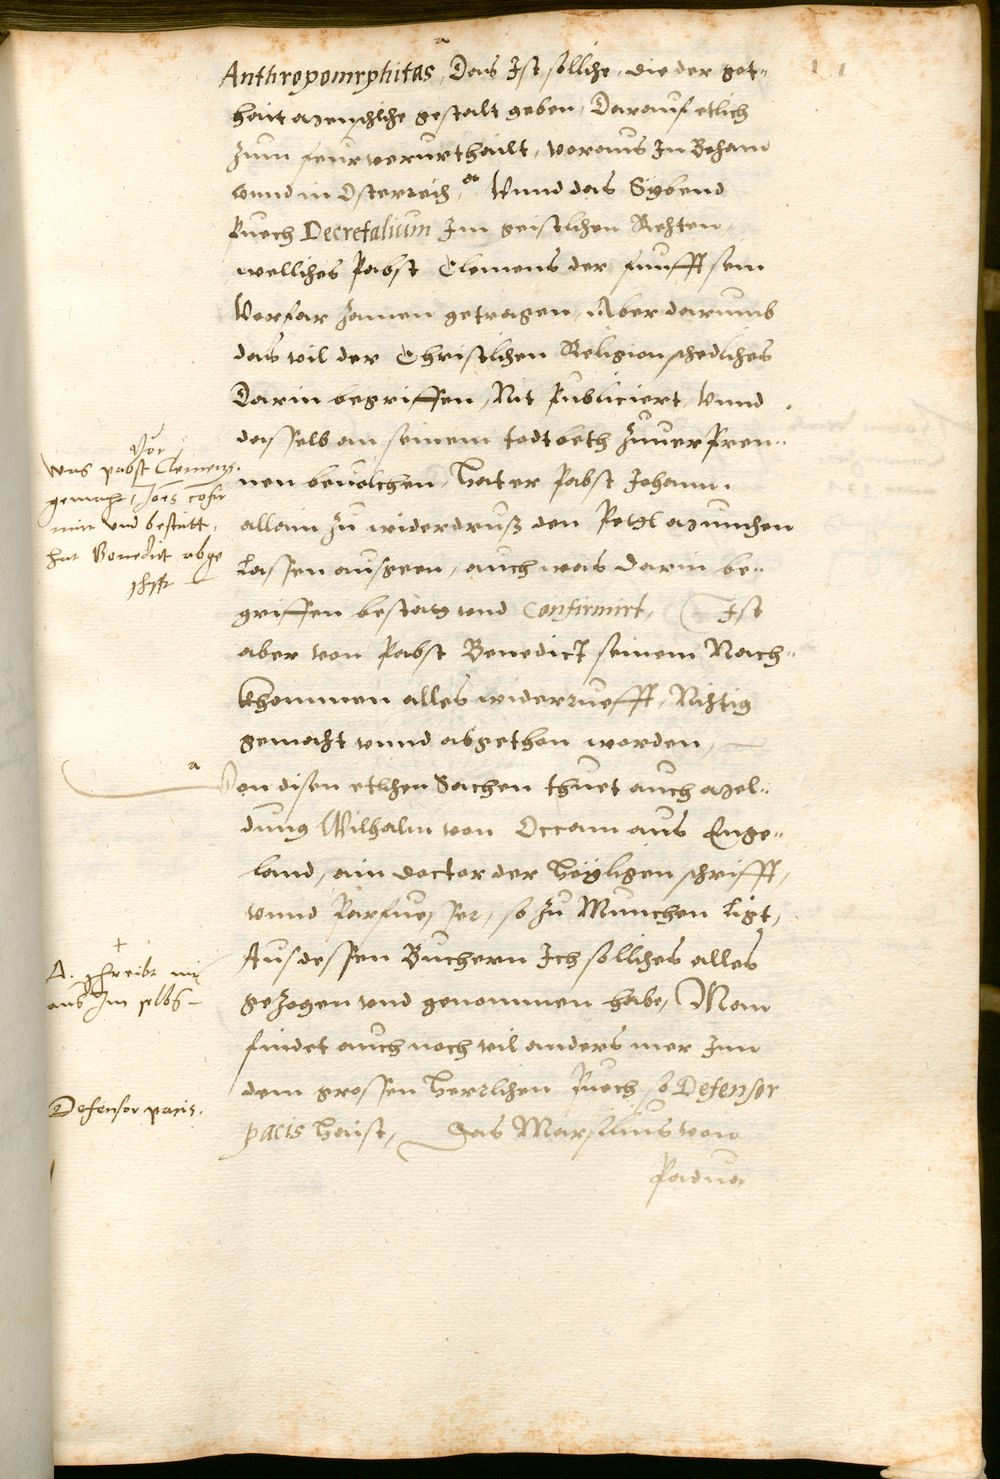 Anthropomrphitas, Das Ist sölliche, die der got-
hait menschliche gestalt geben, Darauf etlich
Zum feur verurthailt, voraus In Beham
vnnd in Osterreich, Vnnd das Sybend
Puech Decretalium Im geistlichen Rechten
welliches Pabst Clemens der funfft sein
Vorfar Zamen getragen, Aber darumb
das vil der Christlichen Religion schedliches
Darin begriffen, Nit Publiciert, Vnnd
dasselb an seinem todtbeth Zuuerpren-
nen beuolchen, Hat er Pabst Johann
allain Zu widerdrusz den Petl München
Lassen ausgeen, auch was darin be-
griffen bestatt vnd Confirmirt, Ist
aber von Pabst Benedict seinem Nach-
khommen alles widerruefft, Nichtig
gemacht vnnd abgethon worden,
a
Von disen etlichen Sachen thuet auch mel-
dung Wilhalm von Occam aus Enge-
land, ain doctor der Heyligen schrifft,
vnnd Parfuesser, so Zu München ligt,
Aus dessen Buchern Ich solliches alles
gezogen vnd genommen habe, Man
findet auch noch vil anders mer Inn
dem grossen Herrlichen Puech so Defensor
pacis Haist, Das Marsilius von
Padua
Vor
was pabst Clemens
gemacht, Joes cofir
mirt vnd bestatt,
hat Benedict abge
schafft
A. schreibt nit
aus Im selbs
Defensor pacis.